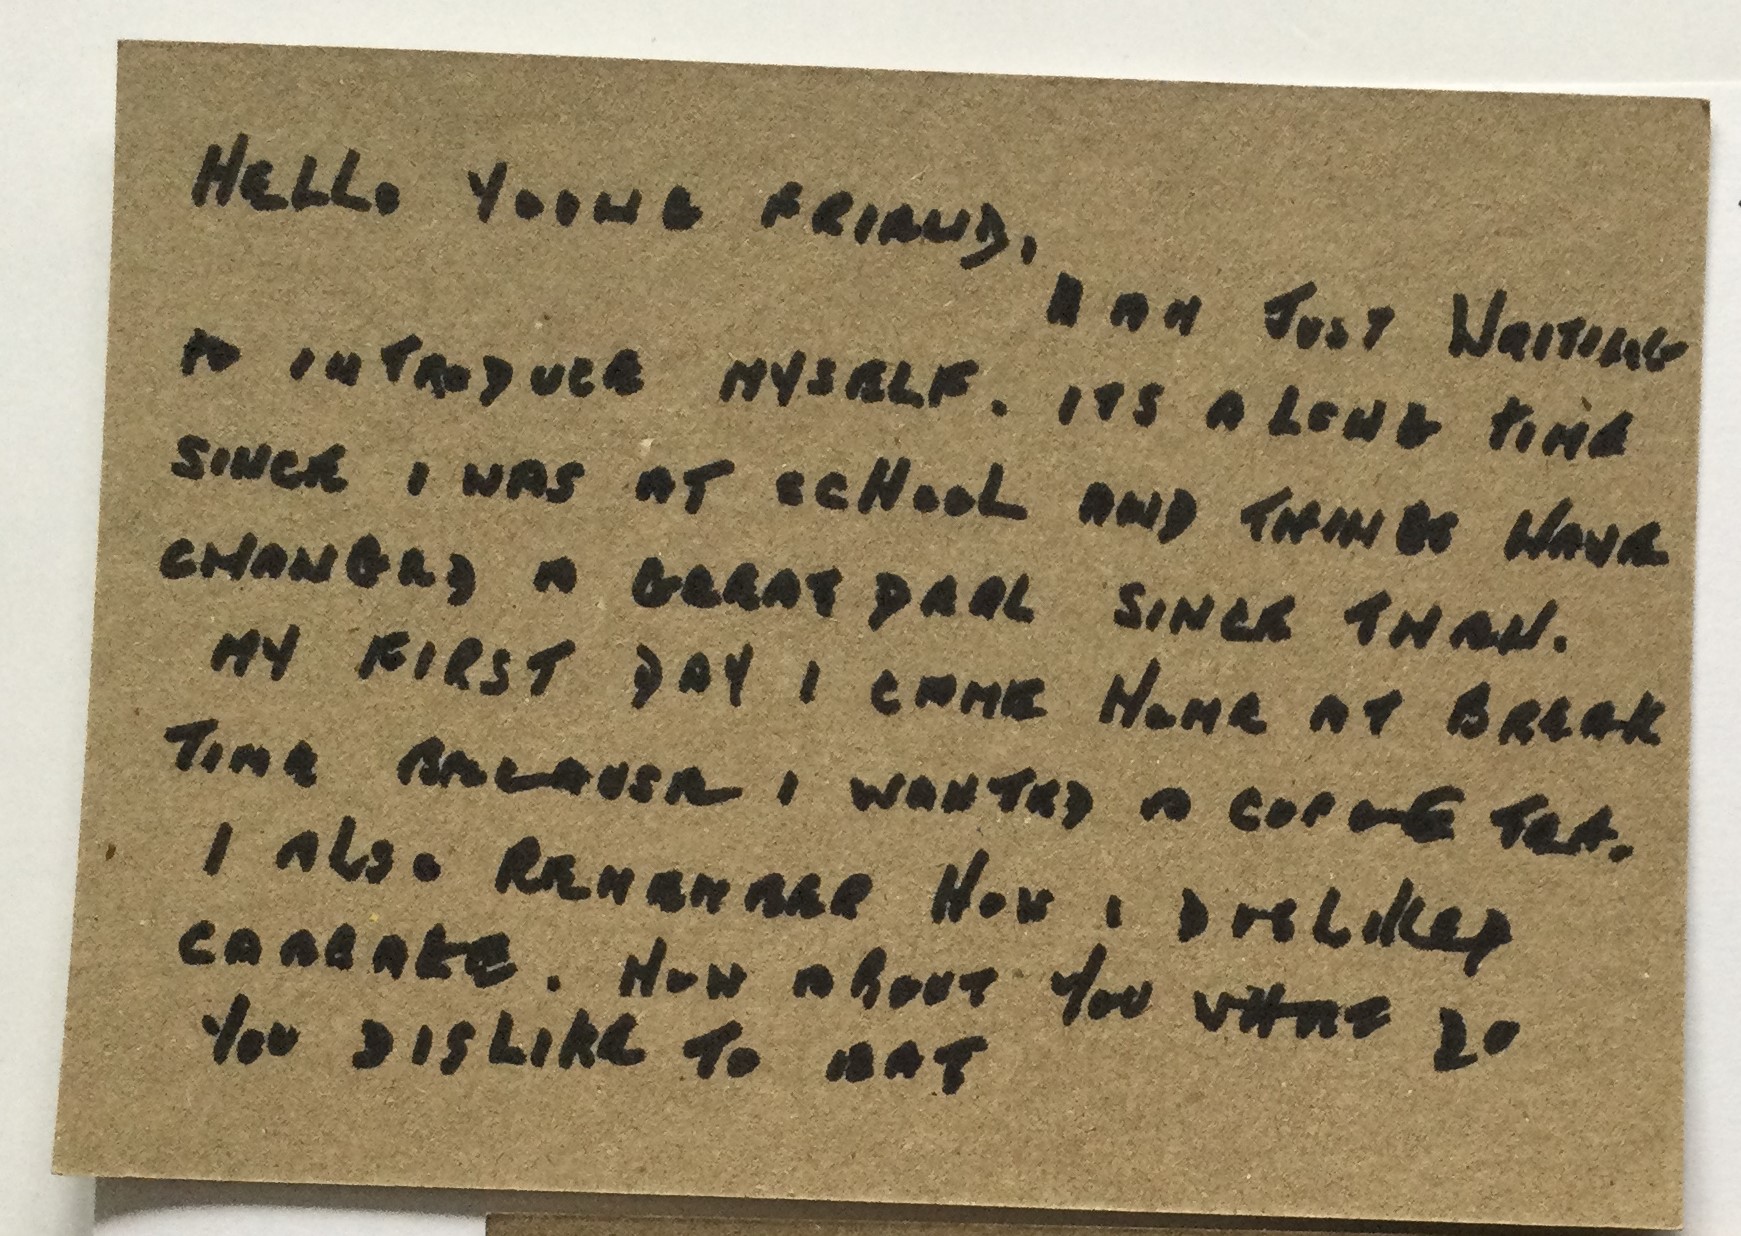 HELLO YOUNG FRIEND,
I AM JUST WRITING
TO INTRODUCE MYSELF. ITS A LONG TIME
SINCE I WAS AT SCHOOL AND THINGS HAVE
CHANGED A GREAT DEAL SINCE THEN.
MY FIRST DAY I CAME HOME AT BREAK
TIME BECAUSE I WANTED A CUP OF TEA.
I ALSO REMEMBER HOW I DISLIKED
CABBAGE. HOW ABOUT YOU WHAT DO
YOU DISLIKE TO EAT